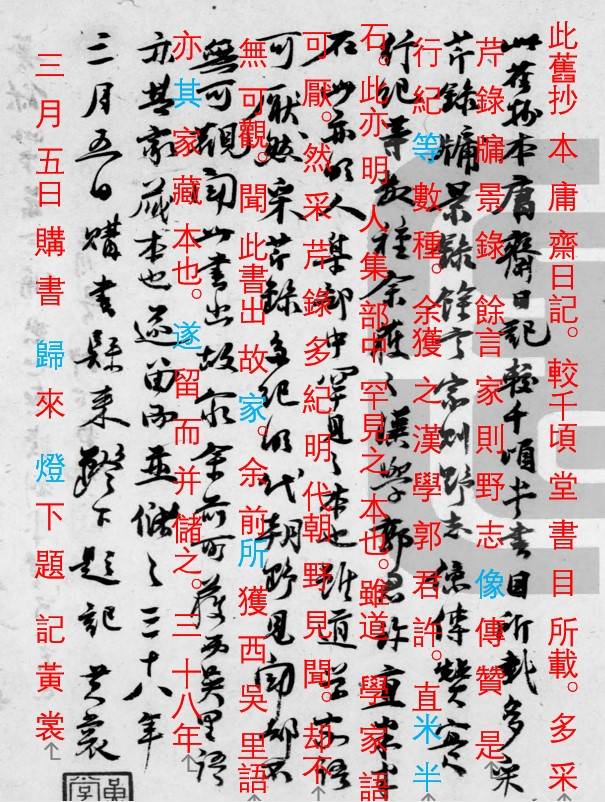 此舊抄本庸齋日記。較千頃堂書目所載。多采
芹錄牖景錄餘言家則野志像傳贊是
行紀等數種。余獲之漢學郭君許。直米半
石。此亦明人集部中罕見之本也。雖道學家語
可厭。然采芹錄多紀明代朝野見聞。却不
無可觀。聞此書出故家。余前所獲西吳里語
亦其家藏本也。遂留而并儲之。三十八年
三月五日購書歸來燈下題記黃裳